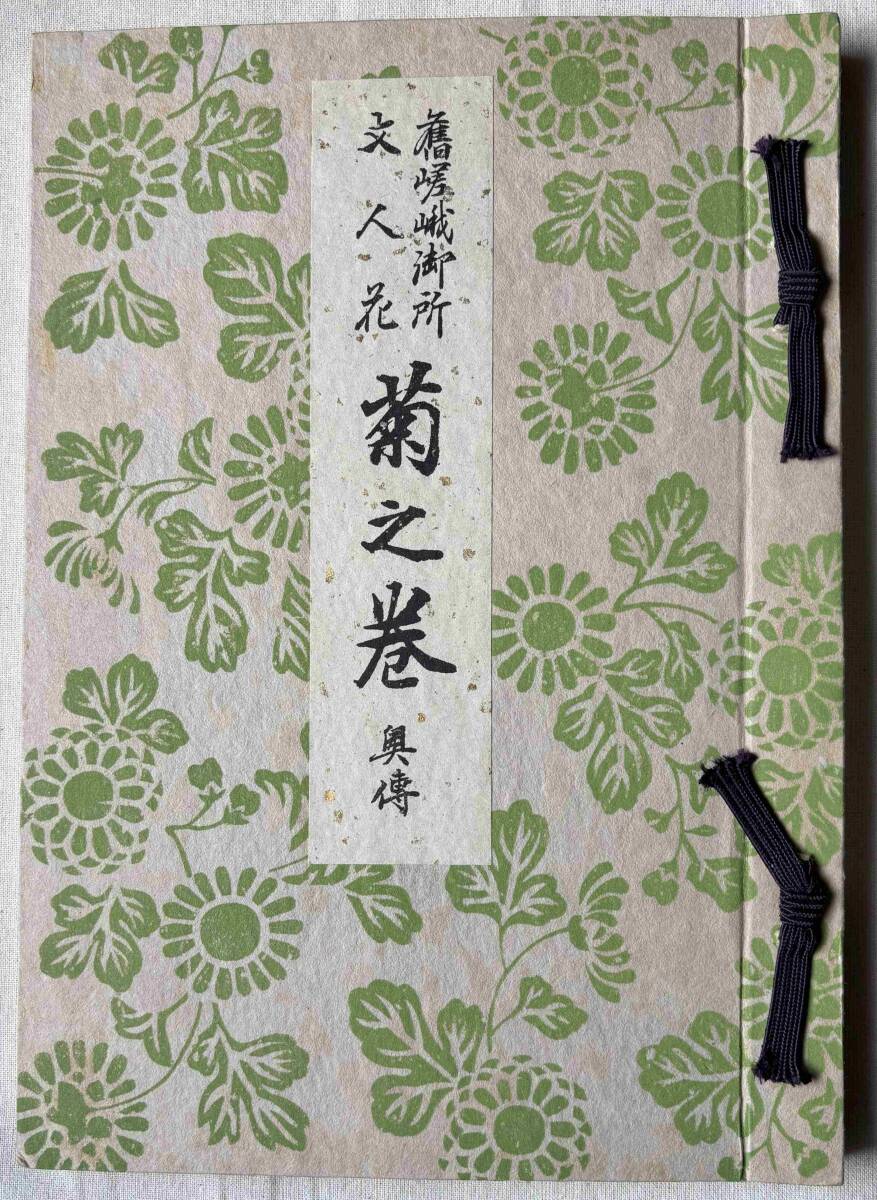 舊嵯峨御所
文人花
菊之巻
奥傳